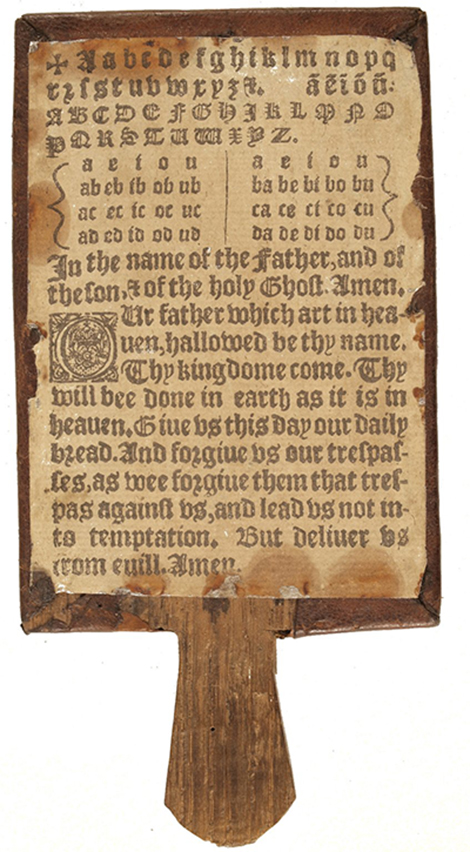 ✠ Aabcdefghiklmnopq
rꝛſstubwxyzꝛ&. ãẽĩõũ:
ABCDEFGHIKLMNO
PQRSTUWXYZ.
a e i o u a e i o u
ab eb ib ob ub ba be bi bo bu
ac ec ic oc uc ca ce ci co cu
ad ed id od ud da de di do du
In the name of the Father, and of
the ſon, & of the holy Ghoſt. Amen.
OUr father which art in hea-
uen, hallowed be thy name.
Thy kingdome come. Thy
will bee done in earth as it is in
heauen, Giue vs this day our daily
bread. And forgiue vs our treſpaſ-
ſes, as wee forgiue them that treſ-
pas againſt vs, and lead vs not in-
to temptation. But deliuer vs
from euill. Amen.